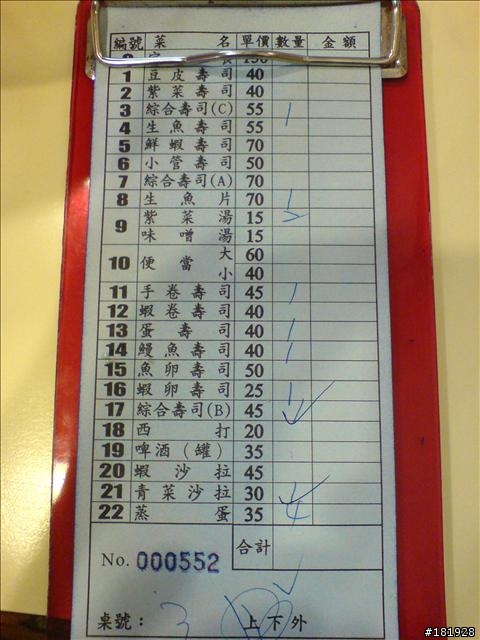 編號 菜名 單價 數量 金額
1 豆皮壽司 40
2 紫菜壽司 40
3 綜合壽司(C) 55 1
4 生魚壽司 55
5 鮮蝦壽司 70
6 小管壽司 50
7 綜合壽司(A) 70
8 生魚片 70 1
9 紫菜湯 15 2
味噌湯 15
10 便當 大 60
小 40
11 手卷壽司 45 1
12 蝦卷壽司 40
13 蛋壽司 40 1
14 鰻魚壽司 40 1
15 魚卵壽司 50
16 蝦卵壽司 25 1
17 綜合壽司(B) 45
18 西打 20
19 啤酒(罐) 35
20 蝦沙拉 45
21 青菜沙拉 30
22 蒸蛋 35
合計
No. 000552
桌號: 3 上 下 外
#181928